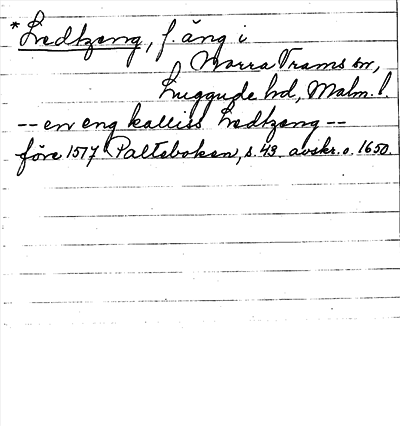 *Ledtzeng, f. äng i
Norra Vrams sn,
Luggude hd, Malm. l.
-- en eng kalliss Ledtzeng --
före 1577 Palteboken, s. 49. avskr. o. 1650.